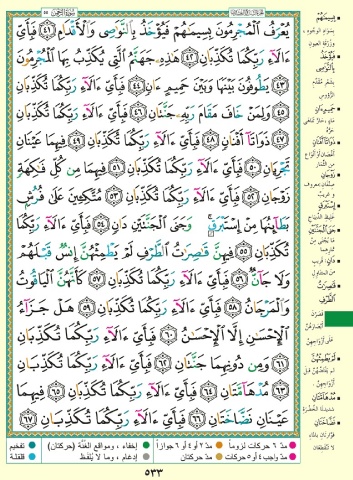 سورة الرحمن ٥٥
يُعْرَفُ ٱلْمُجْرِمُونَ بِسِيمَٰهُمْ فَيُؤْخَذُ بِٱلنَّوَٰصِى وَٱلْأَقْدَامِ ﴿٤١﴾ فَبِأَىِّ
ءَالَآءِ رَبِّكُمَا تُكَذِّبَانِ ﴿٤٢﴾ هَٰذِهِۦ جَهَنَّمُ ٱلَّتِى يُكَذِّبُ بِهَا ٱلْمُجْرِمُونَ
﴿٤٣﴾ يَطُوفُونَ بَيْنَهَا وَبَيْنَ حَمِيمٍ ءَانٍ ﴿٤٤﴾ فَبِأَىِّ ءَالَآءِ رَبِّكُمَا تُكَذِّبَانِ
﴿٤٥﴾ وَلِمَنْ خَافَ مَقَامَ رَبِّهِۦ جَنَّتَانِ ﴿٤٦﴾ فَبِأَىِّ ءَالَآءِ رَبِّكُمَا تُكَذِّبَانِ
﴿٤٧﴾ ذَوَاتَآ أَفْنَانٍ ﴿٤٨﴾ فَبِأَىِّ ءَالَآءِ رَبِّكُمَا تُكَذِّبَانِ ﴿٤٩﴾ فِيهِمَا عَيْنَانِ
تَجْرِيَانِ ﴿٥٠﴾ فَبِأَىِّ ءَالَآءِ رَبِّكُمَا تُكَذِّبَانِ ﴿٥١﴾ فِيهِمَا مِن كُلِّ فَٰكِهَةٍ
زَوْجَانِ ﴿٥٢﴾ فَبِأَىِّ ءَالَآءِ رَبِّكُمَا تُكَذِّبَانِ ﴿٥٣﴾ مُتَّكِـِٔينَ عَلَىٰ فُرُشٍۭ
بَطَآئِنُهَا مِنْ إِسْتَبْرَقٍ وَجَنَى ٱلْجَنَّتَيْنِ دَانٍ ﴿٥٤﴾ فَبِأَىِّ ءَالَآءِ رَبِّكُمَا
تُكَذِّبَانِ ﴿٥٥﴾ فِيهِنَّ قَٰصِرَٰتُ ٱلطَّرْفِ لَمْ يَطْمِثْهُنَّ إِنسٌ قَبْلَهُمْ
وَلَا جَآنٌّ ﴿٥٦﴾ فَبِأَىِّ ءَالَآءِ رَبِّكُمَا تُكَذِّبَانِ ﴿٥٧﴾ كَأَنَّهُنَّ ٱلْيَاقُوتُ
وَٱلْمَرْجَانُ ﴿٥٨﴾ فَبِأَىِّ ءَالَآءِ رَبِّكُمَا تُكَذِّبَانِ ﴿٥٩﴾ هَلْ جَزَآءُ
ٱلْإِحْسَٰنِ إِلَّا ٱلْإِحْسَٰنُ ﴿٦٠﴾ فَبِأَىِّ ءَالَآءِ رَبِّكُمَا تُكَذِّبَانِ
﴿٦١﴾ وَمِن دُونِهِمَا جَنَّتَانِ ﴿٦٢﴾ فَبِأَىِّ ءَالَآءِ رَبِّكُمَا تُكَذِّبَانِ
﴿٦٣﴾ مُدْهَآمَّتَانِ ﴿٦٤﴾ فَبِأَىِّ ءَالَآءِ رَبِّكُمَا تُكَذِّبَانِ ﴿٦٥﴾ فِيهِمَا
عَيْنَانِ نَضَّاخَتَانِ ﴿٦٦﴾ فَبِأَىِّ ءَالَآءِ رَبِّكُمَا تُكَذِّبَانِ ﴿٦٧﴾
بِسِيمَٰهُمْ
بسواد الوجوه،
وزرقة العيون
فَيُؤْخَذُ
بِالنَّوَاصِي
بشعر مقدَّم
الرؤوس
حَمِيمٍ ءَانٍ
ماء حار تناهى
حَرُّه
ذَوَاتَا أَفْنَانٍ
أغصان أو أنواع
من الثمار
زَوْجَانِ
صنفان: معروف
وغريب
إِسْتَبْرَقٍ
غليظ الديباج
جَنَى الْجَنَّتَيْنِ
ما يُجنى من
ثمارهما
دَانٍ: قريب
من المتناول
قَاصِرَاتُ
الطَّرْفِ
قصَرْنَ
أبصارهنّ
على أزواجهنّ
لَمْ يَطْمِثْهُنَّ
لم يفتضّهنّ قبل
أزواجهنّ
مُدْهَامَّتَانِ
شديدتا الخضرة
نَضَّاخَتَانِ
فوّارتان بالماء
لا تنقطعان
مدّ ٦ حركات لزوماً
مدّ ٢ أو ٤ أو ٦ جوازاً
إخفاء، ومواقع الغُنَّة (حركتان)
تفخيم
مدّ واجب ٤ أو ٥ حركات
مدّ حركتان
إدغام، وما لا يُلفَظ
قلقلة
٥٣٣